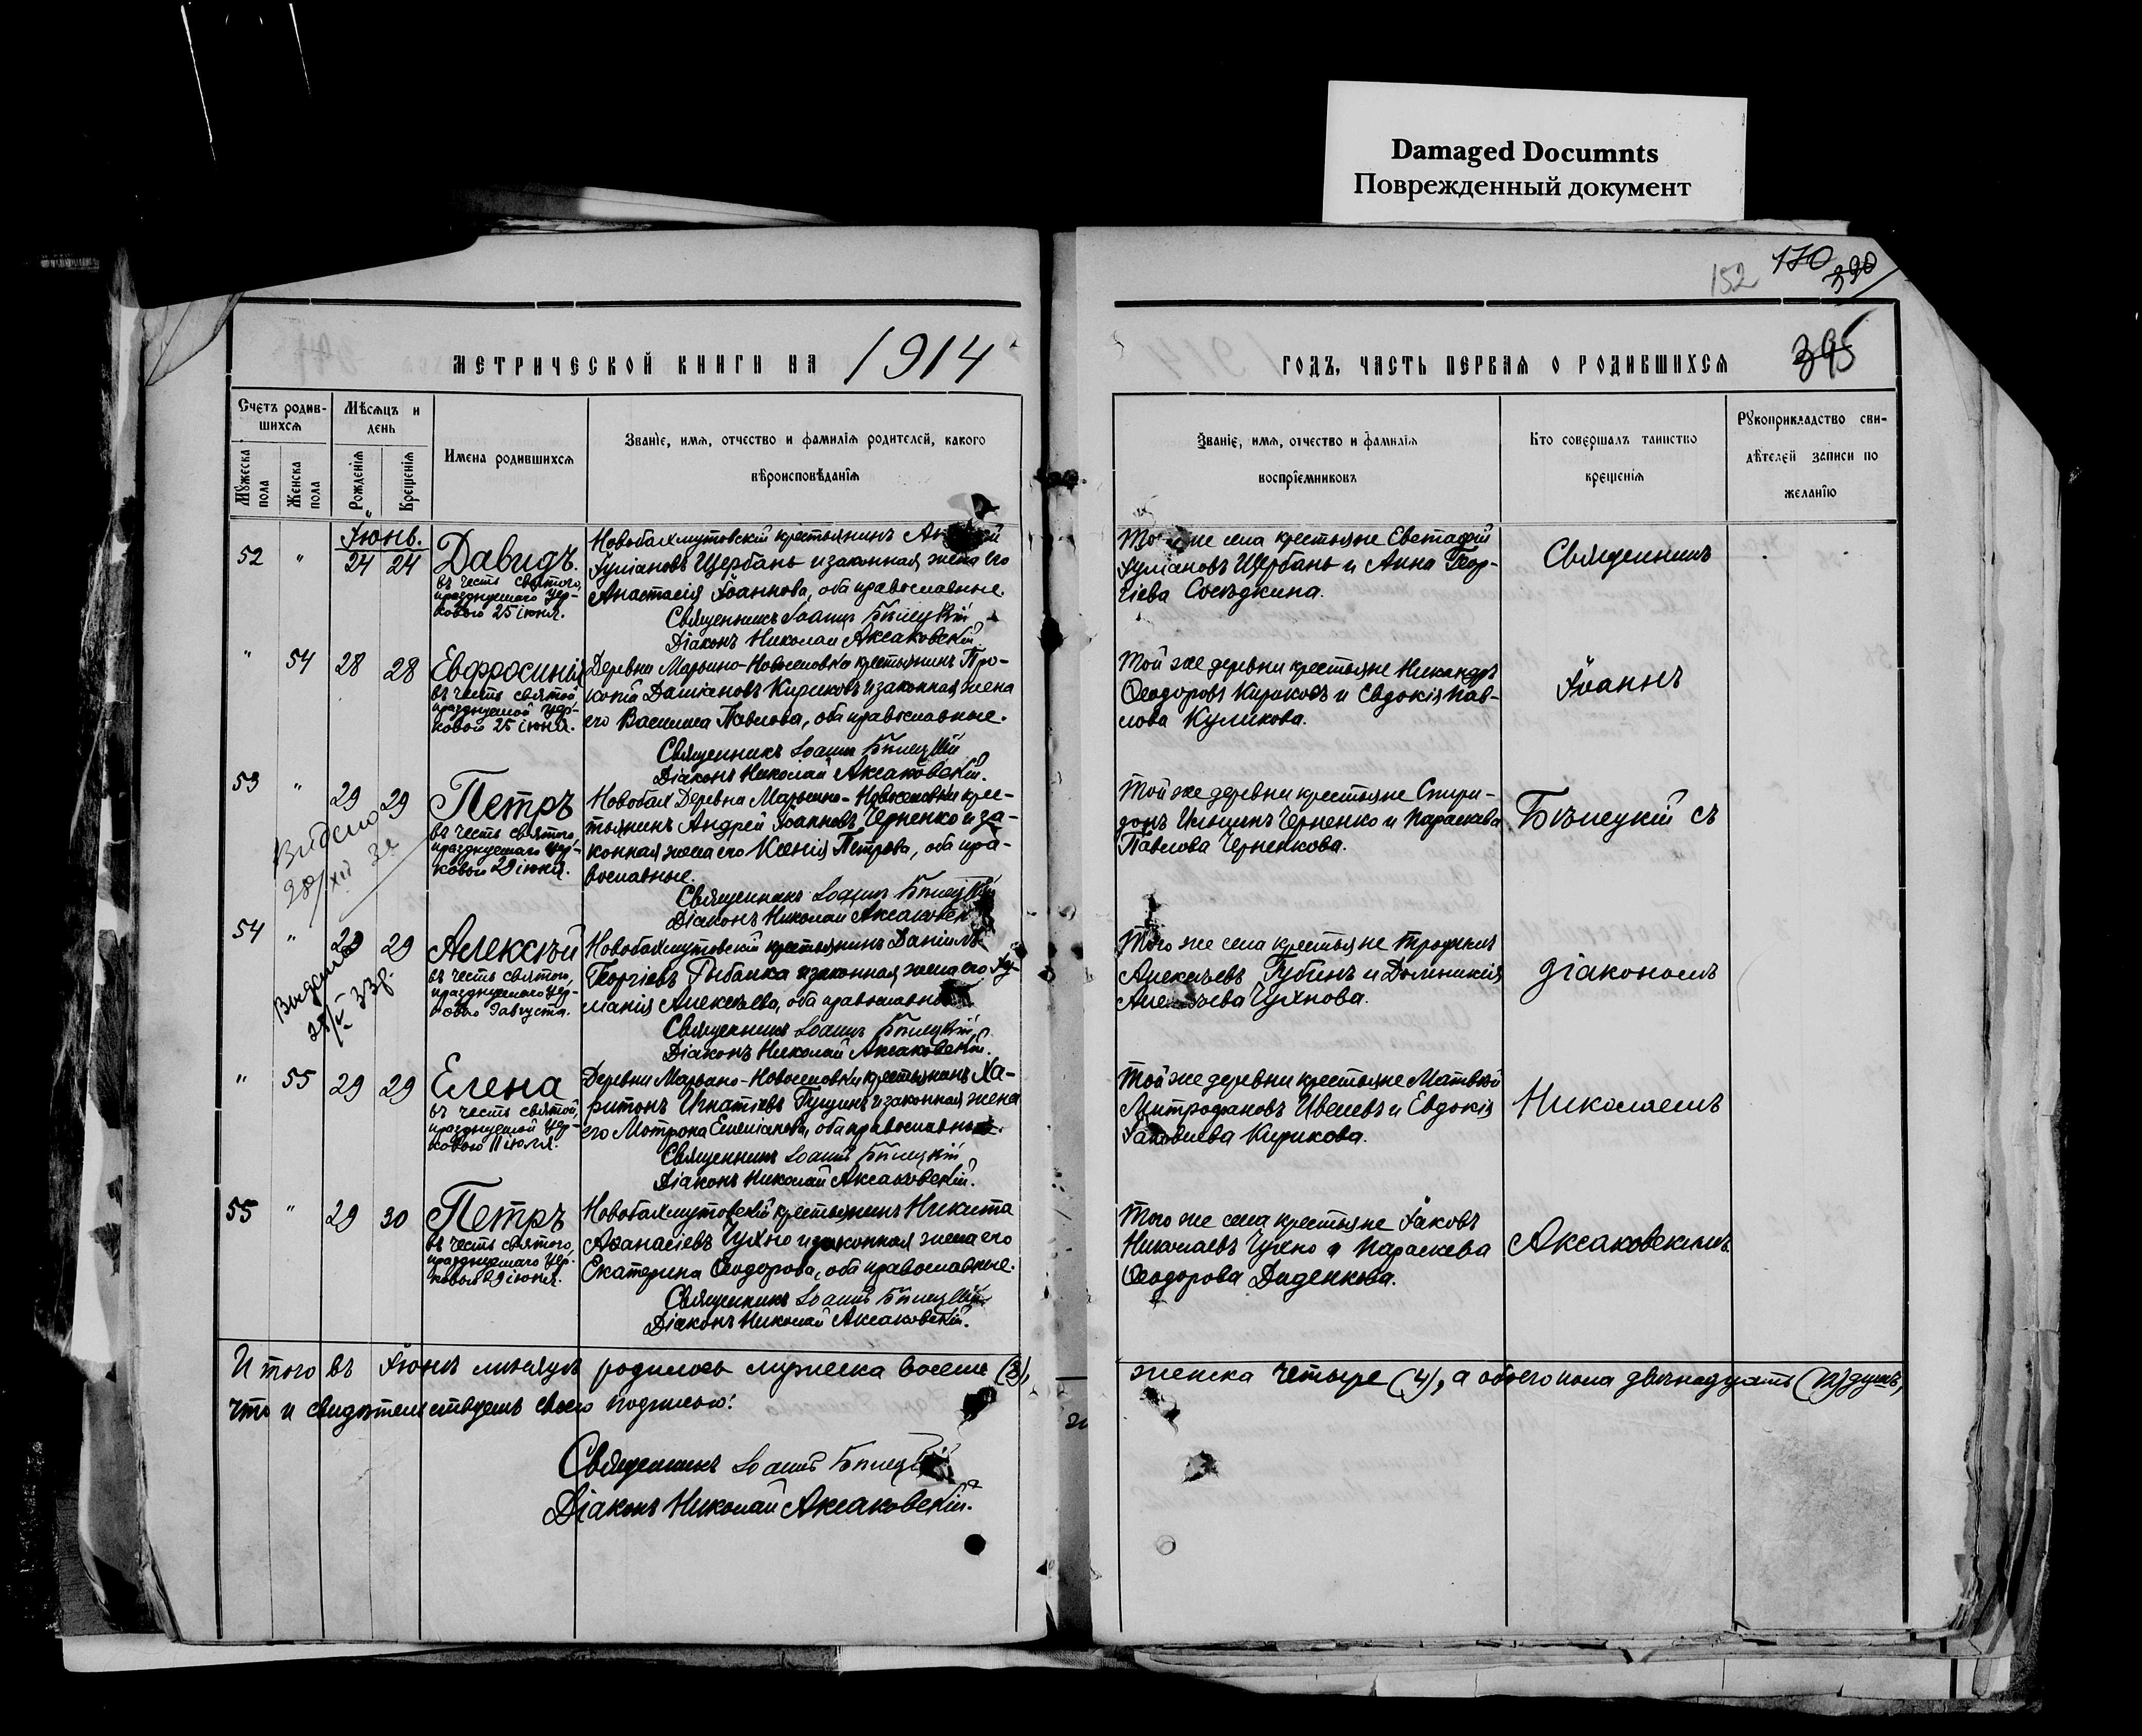 Damaged Documnts
Поврежденный документ
152 170 390
МЕТРИЧЕСКОЙ КНИГИ НА 1914
ГОДЪ, ЧАСТЬ ПЕРВАЯ О РОДИВШИХСЯ 395
Счетъ родив-
шихся
Мѣсяцъ и
день
Мꙋжеска пола
Женска пола
Рожденія
Крещенія
Имена родившихся
Званіе, имя, отчество и фамилія родителей, какого
вѣроисповѣданія
Званіе, имя, отчество и фамилія
воспріемниковъ
Кто совершалъ таинство
крещенія
Рꙋкоприкладство сви-
дѣтелей записи по
желанію
Іюнь.
52 " 24 24 Давидъ.
въ честь святого,
празднуемаго цер-
ковью 25 іюня.
Новобахмутовскій крестьянинъ
Іуліановъ Щербань и законная жена его
Анастасія Іоаннова, оба православные.
Священникъ Іоаннъ Бѣлецкій
Діаконъ Николай Аксаковскій
же села крестьяне Евстафій
Іуліановъ Щербань и Анна Геор-
гіева Сосѣдкина.
Священникъ
" 54 28 28 Евфросинія
въ честь святой
празднуемой цер-
ковью 25 іюня.
Деревни Марьино-Новоселовки крестьянинъ Про-
копій Даміановъ Кириковъ и законная жена
его Василиса Павлова, оба православные.
Священникъ Іоаннъ Бѣлецкій
Діаконъ Николай Аксаковскій.
Той же деревни крестьяне Никандръ
Ѳеодоровъ Кириковъ и Евдокія Пав-
лова Куликова.
Іоаннъ
53 " 29 29 Петръ
въ честь святого,
празднуемаго цер-
ковью 29 іюня.
Новобах Деревни Марьино-Новоселовки крес-
тьянинъ Андрей Іоанновъ Черненко и за-
конная жена его Ксенія Петрова, оба пра-
вославные.
Священникъ Іоаннъ Бѣлецкій
Діаконъ Николай
Той же деревни крестьяне Спири-
донъ Ильинъ Черненко и Параскева
Павлова Черненкова.
Бѣлецкій съ
Видено
28/XII 32
54 " 29 29 Алексѣй
въ честь святого,
празднуемаго цер-
ковью 9 августа.
Новобахмутовскій крестьянинъ Даніилъ
Георгіевъ Рыбалка и законная жена его Іу-
ліанія Алексѣева, оба православные
Священникъ Іоаннъ Бѣлецкій
Діаконъ Николай Аксаковскій.
Того же села крестьяне Трофимъ
Алексѣевъ Губинъ и Домникія
Алексѣева Чухнова.
діакономъ
Видено
33г.
" 55 29 29 Елена
въ честь святой,
празднуемой цер-
ковью 11 іюля.
Деревни Марьино-Новоселовки крестьянинъ Ха-
ритонъ Игнатіевъ Гущинъ и законная жена
его Мотрона Емиліанова, оба православные.
Священникъ Іоаннъ Бѣлецкій
Діаконъ Николай Аксаковскій.
Той же деревни крестьяне Матвѣй
Митрофановъ Ивелевъ и Евдокія
Іаковлева Кирикова.
Николаемъ
55 " 29 30 Петръ
въ честь святого,
празднуемаго цер-
ковью 29 іюня.
Новобахмутовскій крестьянинъ Никита
Аѳанасіевъ Чухно и законная жена его
Екатерина Ѳеодорова, оба православные.
Священникъ Іоаннъ Бѣлецкій
Діаконъ Николай Аксаковскій.
Того же села крестьяне Іаковъ
Николаевъ Чухно и Параскева
Ѳеодорова Диденкова.
Аксаковскимъ.
Итого въ Іюнѣ мѣсяцѣ родилось мужеска восемь (8),
женска четыре (4), а обоего пола двѣнадцать (12) душъ,
что и свидѣтельствуемъ своею подписью:
Священникъ Іоаннъ Бѣлецкій
Діаконъ Николай Аксаковскій.